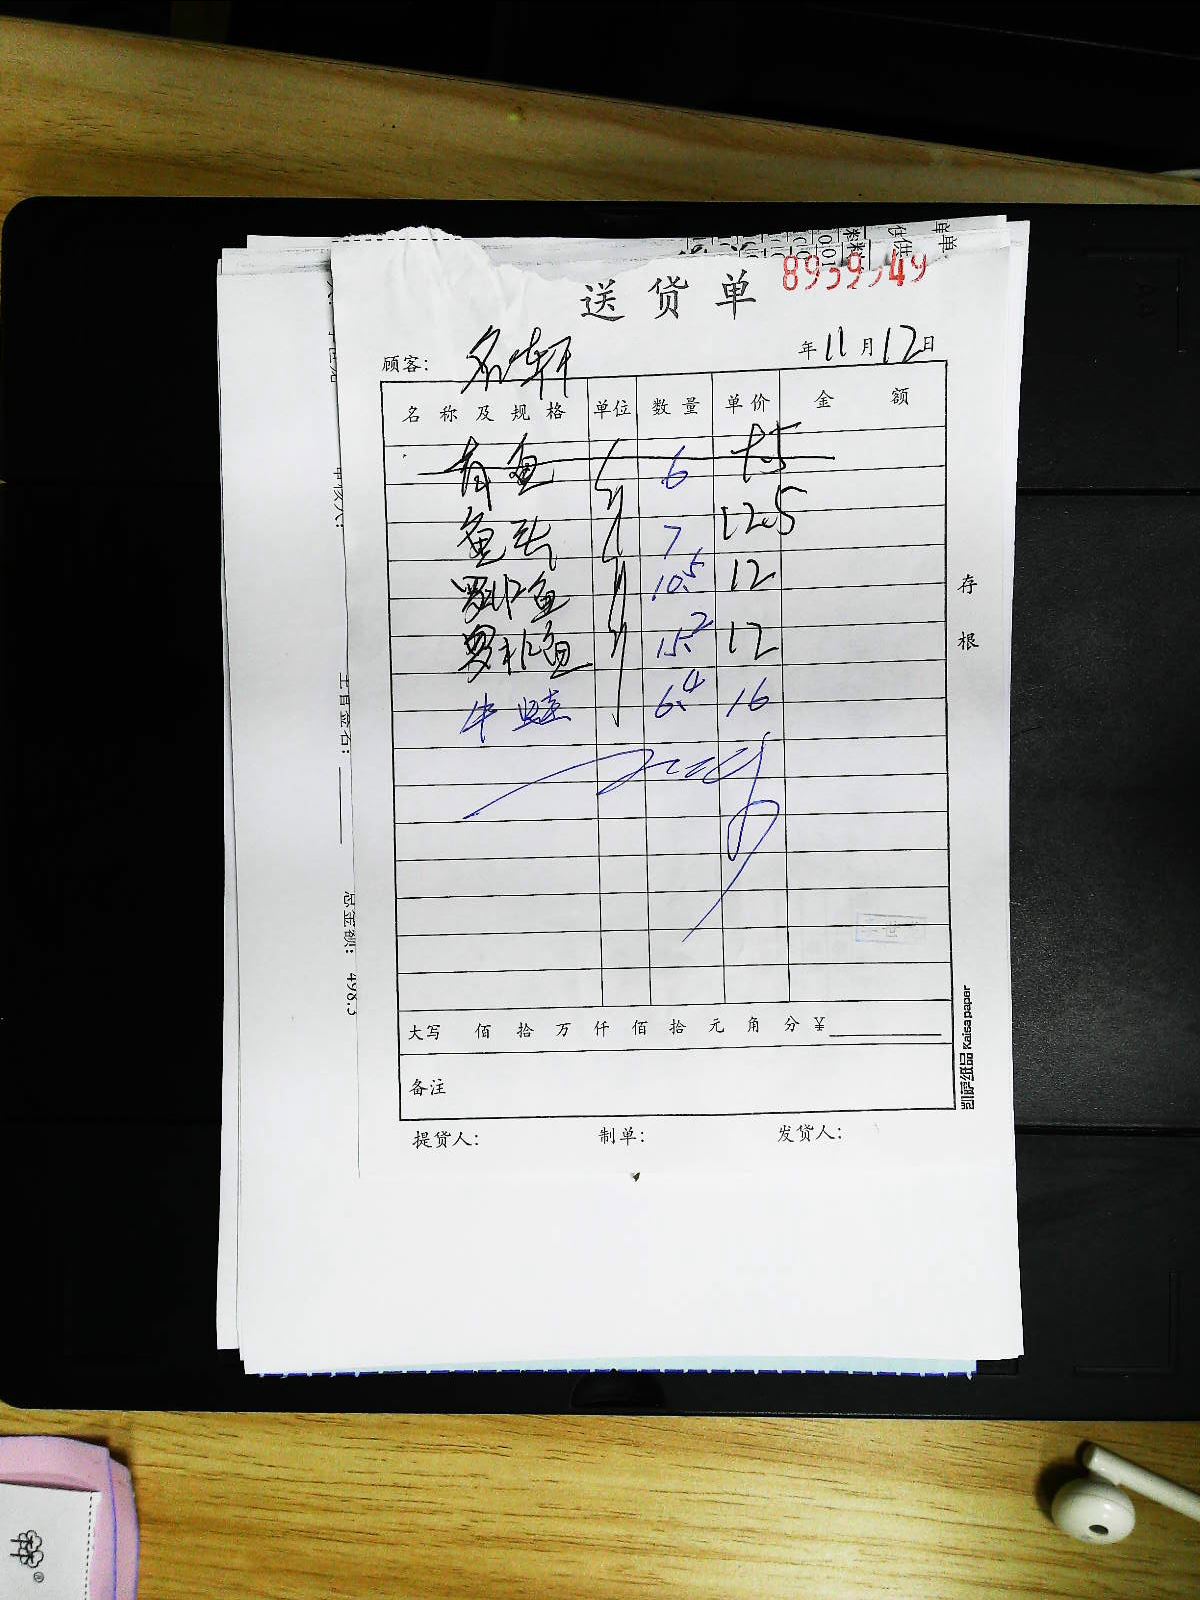 送货单
顾客: 名轩 年11月12日
名称及规格 单位 数量 单价 金额
鱼 6
鱼头 斤 7 12.5
罗非鱼 斤 10.5 12
罗非鱼 斤 15.2 12
牛蛙 斤 6.4 16
存根
大写 佰 拾 万 仟 佰 拾 元 角 分 ¥
备注
提货人: 制单: 发货人:
凯萨纸品 Kaisa paper
总金额: 498.5